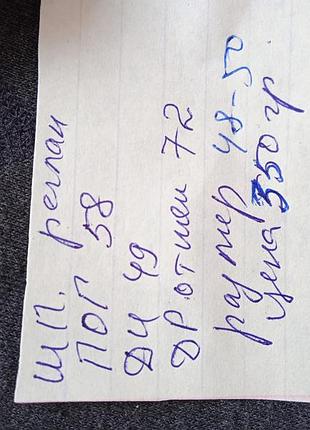 ШП. реглан
ПОГ 58
ДИ 49
ДР от шеи 72
размер 48-50
цена 350 гр